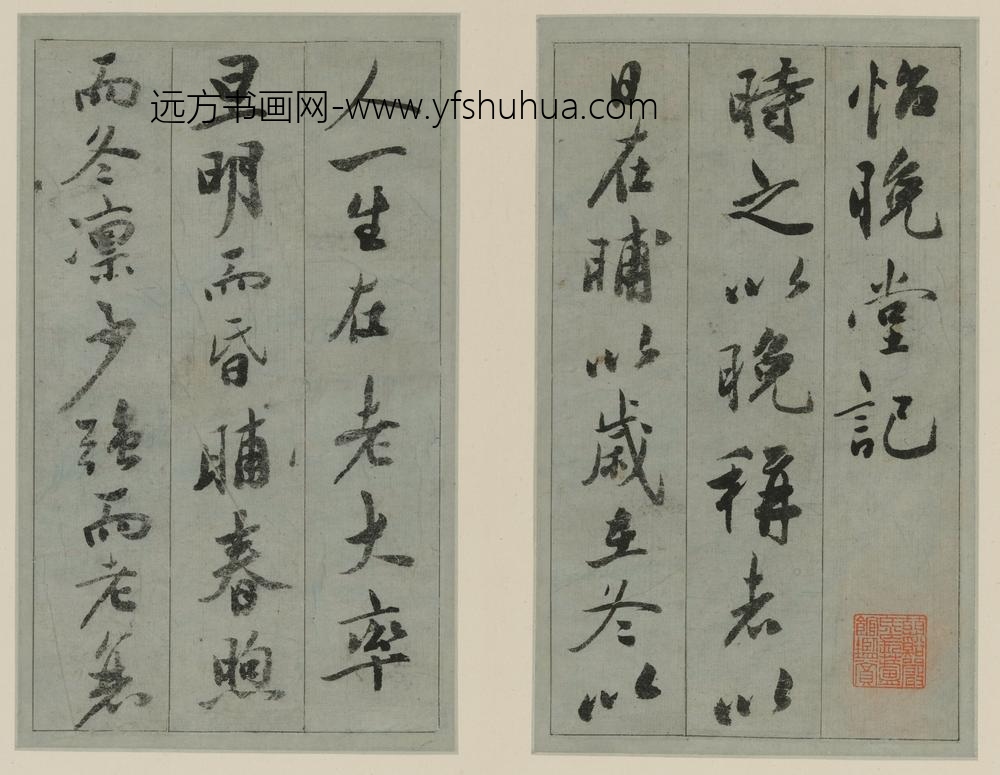 怡晚堂記
時之以晚稱者以
日在晡以歲在冬以
人一生在老大率
旦明而昏晡春煦
而冬凛少強而老衰
远方书画网-www.yfshuhua.com